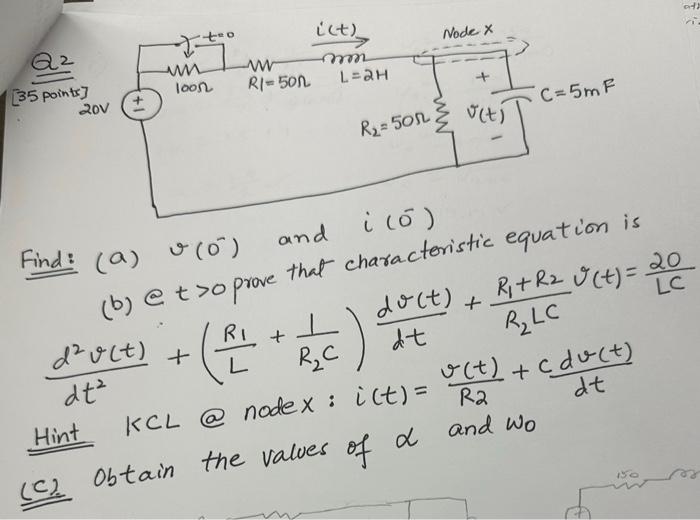 Q2
[35 points]
t=0
i(t)
Node X
100Ω
R1=50Ω
L=2H
20V
+
-
R₂=50Ω
+
v(t)
-
C=5mF
Find: (a) v(0⁻) and i(0⁻)
(b) @ t>0 prove that characteristic equation is
d²v(t)/dt² + (R1/L + 1/R₂C) dv(t)/dt + R1+R2/R₂LC v(t) = 20/LC
Hint KCL @ node x : i(t) = v(t)/R2 + C dv(t)/dt
(C) Obtain the values of α and wo
150